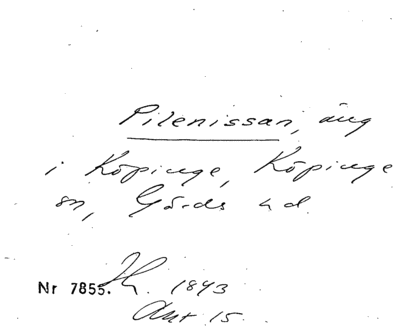 Pilenissan, äng
i Köpinge, Köpinge
sn, Gärds hd.
Nr 7855. 1843
Akt 15.